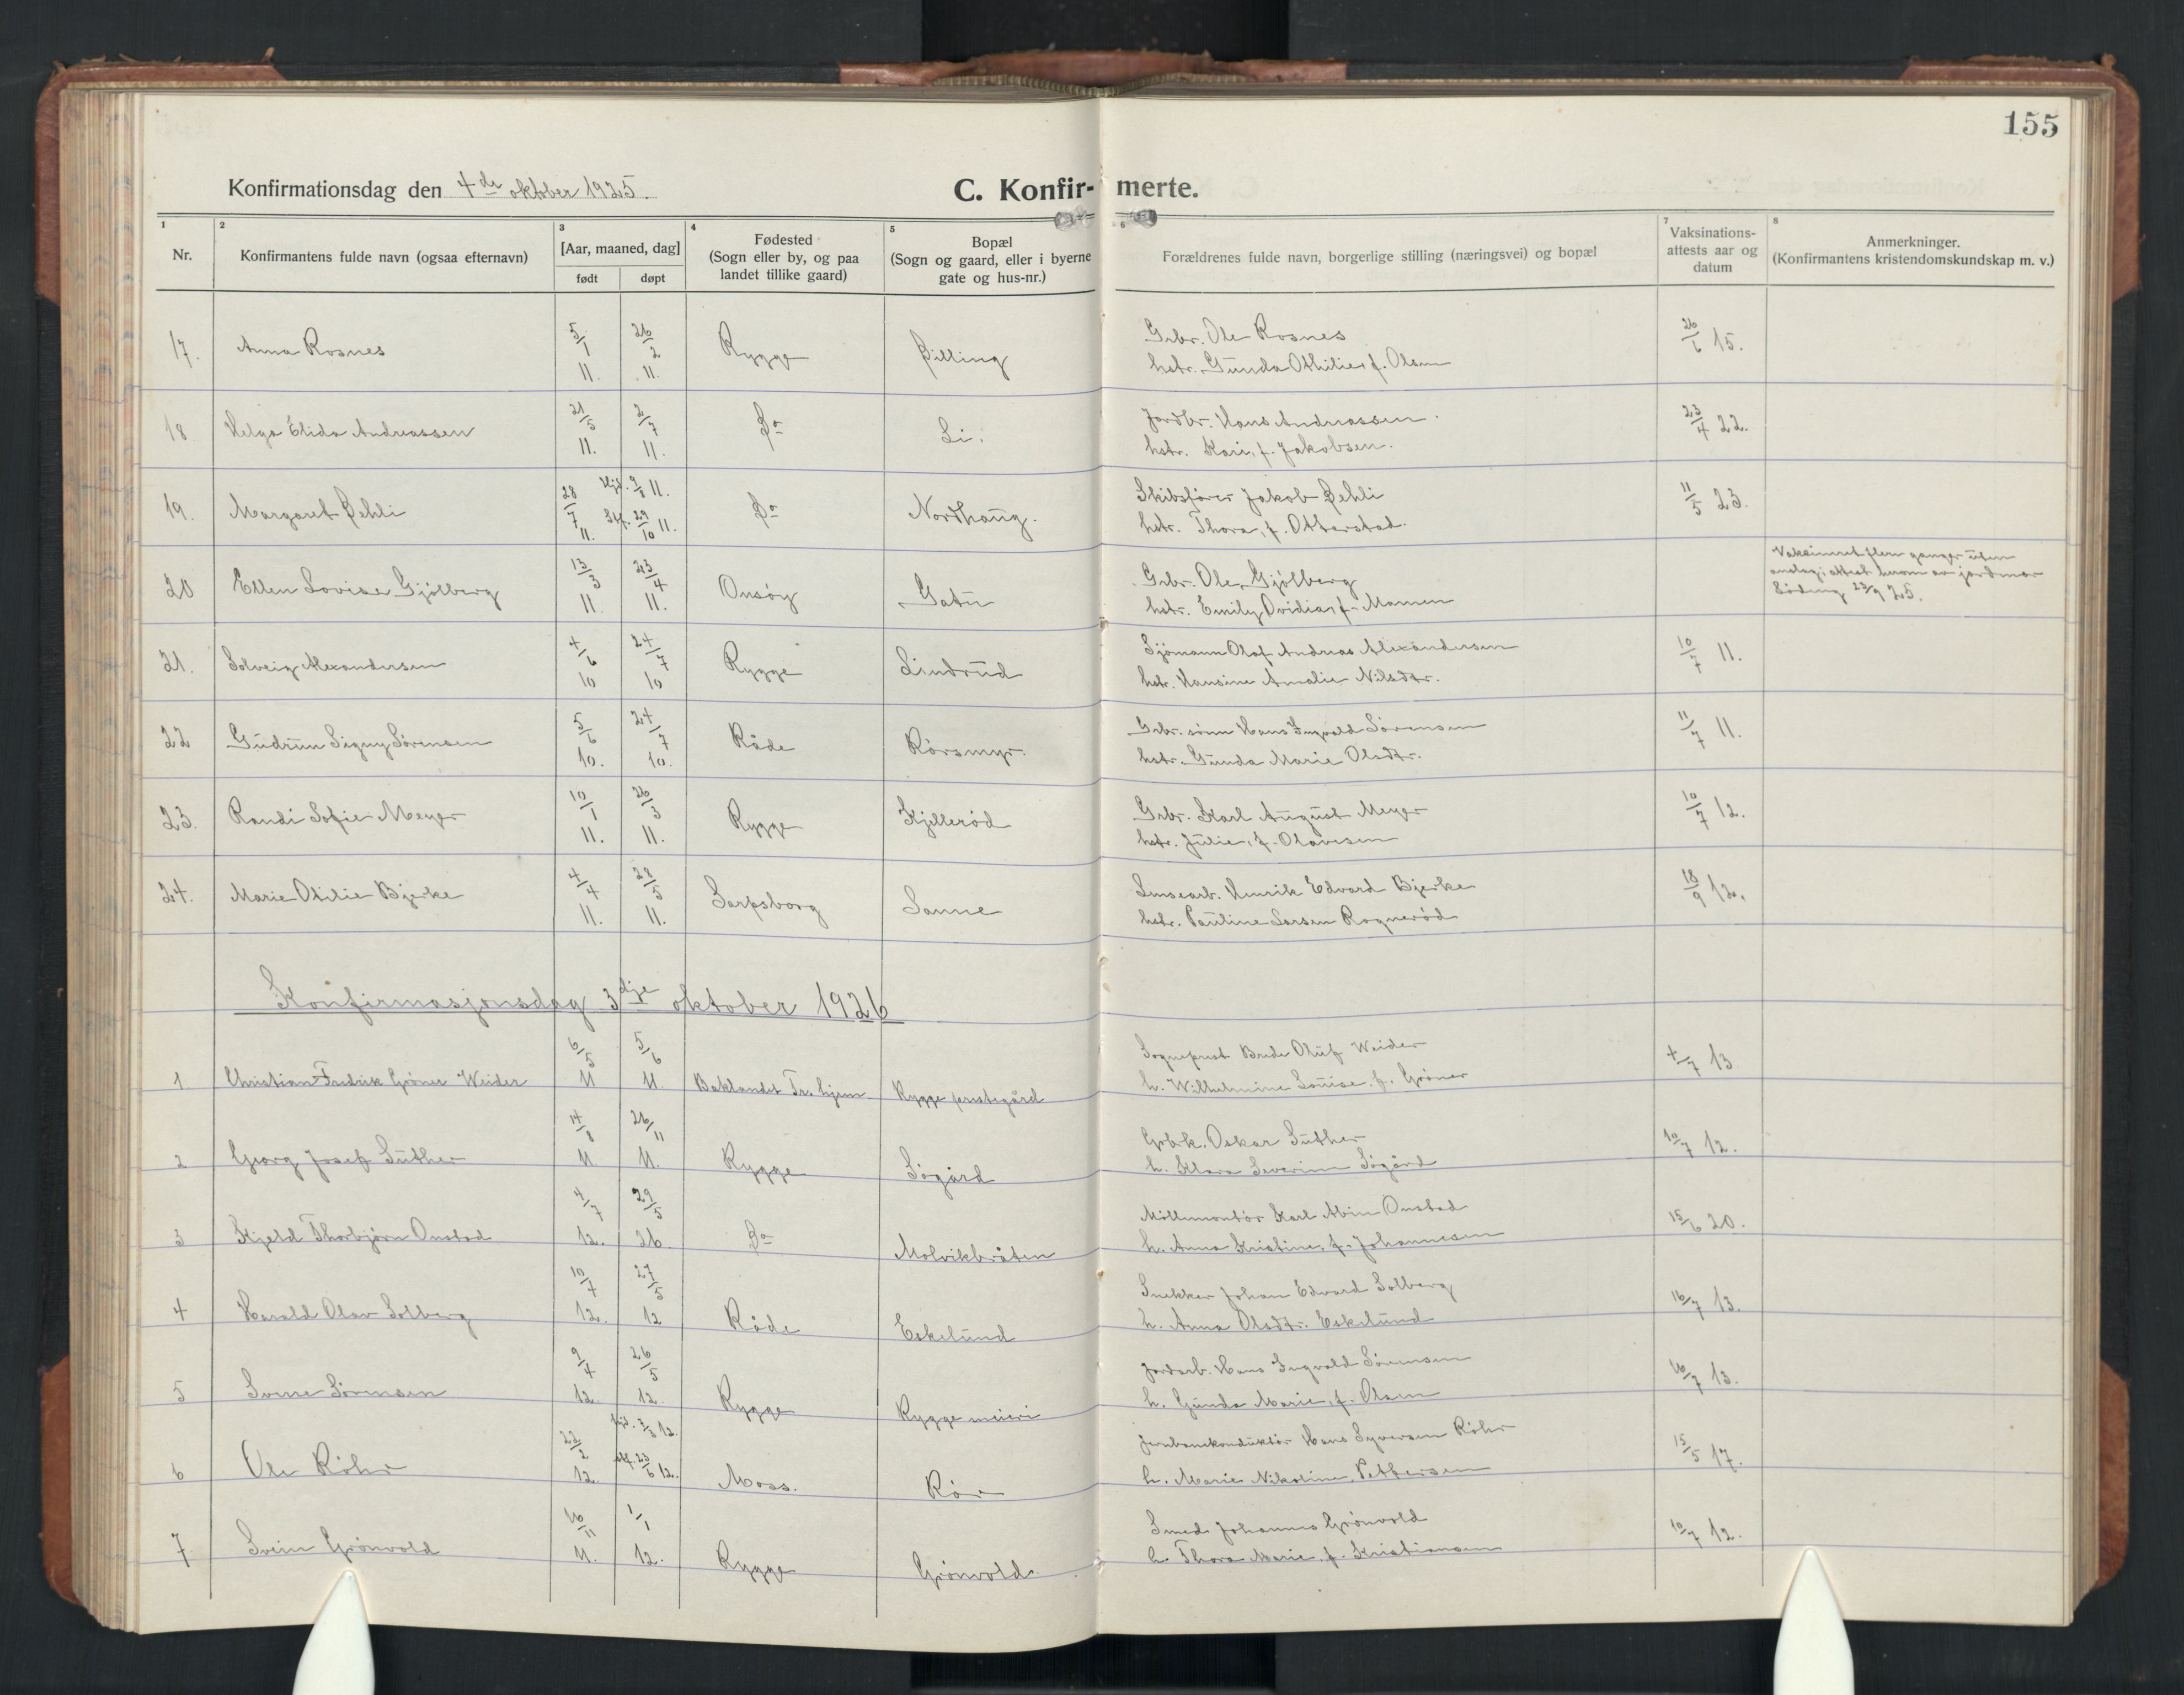 155
Konfirmationsdag den 4de oktober 1925.
C. Konfir- merte.
1 2 3 4 5 6 7 8
Nr.
Konfirmantens fulde navn (ogsaa efternavn)
[Aar, maaned, dag]
født døpt
Fødested
(Sogn eller by, og paa
landet tillike gaard)
Bopæl
(Sogn og gaard, eller i byerne
gate og hus-nr.)
Forældrenes fulde navn, borgerlige stilling (næringsvei) og bopæl
Vaksinations-
attests aar og
datum
Anmerkninger.
(Konfirmantens kristendomskundskap m. v.)
17. Anna Rosnes 5/1 11. 26/2 11. Rygge Dilling Grbr. Ole Rosnes 26/6 15.
hstr. Gunda Othilie, f. Olsen
18 Helga Elida Andreassen 21/5 11. 2/7 11. Do Li. Jordbr. Hans Andreassen 23/4 22.
hstr. Kari, f. Jakobsen.
19. Margaret Dehli 28/7 11. Hjd. 9/8 11. Do Nordhaug. Skibsfører Jakob Dehli 11/5 23.
Stf. 29/10 11. hstr. Thora, f. Otterstad.
20 Ellen Lovise Gjølberg 13/3 11. 23/4 11. Onsøy Gatu Grbr. Ole Gjølberg Vaksineret flere ganger uten
hstr. Emily Ovidia, f. Mamen anslag; attest herom av jordmor
23/9 25.
21. Solveig Alexandersen 4/6 10 24/7 10 Rygge Lindrud Sjømann Olaf Andreas Alexandersen 10/7 11.
hstr. Hansine Amalie Nilsdtr.
22 Gudrun Signy Sørensen 5/6 10. 24/7 10. Råde Rørsmyr. Grbr. sønn Hans Ingvald Sørensen 11/7 11.
hstr. Gunda Marie Olsdtr.
23. Randi Sofie Meyer 10/1 11. 26/3 11. Rygge Kjillerød Grbr. Karl August Meyer 10/7 12.
hstr. Julie, f. Olavesen
24. Marie Otilie Bjerke 4/4 11. 28/5 11. Sarpsborg Sanne Henrik Edvard Bjerke 18/9 12.
hstr. Pauline Larsen Rognerød
Konfirmasjonsdag 3dje oktober 1926
1 Christian Fredrik Grøner Weider 6/5 11 5/6 11. Baklandet Tr.hjem Rygge prestegård Sogneprest Brede Oluf Weider 4/7 13
h. Wilhelmine Louise, f. Grøner
2 Georg Josef Suther 14/8 11. 26/11 11. Rygge Søgård Grbrk. Oskar Suther 10/7 12.
h. Klara Severine Søgård
3 Kjeld Thorbjørn Onstad 4/7 12. 29/5 26. Do Molvikbråten Møllemontør Karl Abin Onstad 15/6 20.
h. Anna Kristine, f. Johannesen
4 Harald Olav Solberg 10/7 12. 27/5 12 Råde Eskelund Snekker Johan Edvard Solberg 16/7 13.
h. Anna Olsdtr. Eskelund
5 Sverre Sørensen 9/4 12. 26/5 12. Rygge Rygge meieri Jordarb. Hans Ingvald Sørensen 16/7 13.
h. Gunda Marie, f. Olsen
6 Ole Röhr 22/2 12. hjd. 3/3 12. Moss. Rør Jernbanekonduktør Hans Syversen Röhr 15/5 17.
stf. 23/6 12. h. Marie Nikoline Pettersen
7 Svein Grønvold 16/11 11. 1/1 12. Rygge Grønvold. Smed Johannes Grønvold 10/7 12.
h. Thora Marie, f. Kristiansen